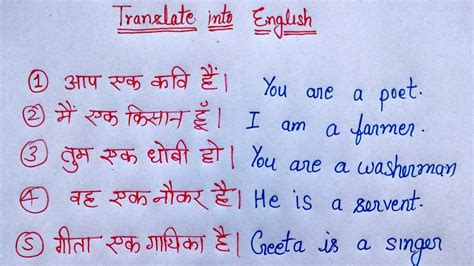 Translate into English
① आप एक कवि हैं। You are a poet.
② मैं एक किसान हूँ। I am a farmer.
③ तुम एक धोबी हो। You are a washerman
④ वह एक नौकर है। He is a servent.
⑤ गीता एक गायिका है। Geeta is a singer